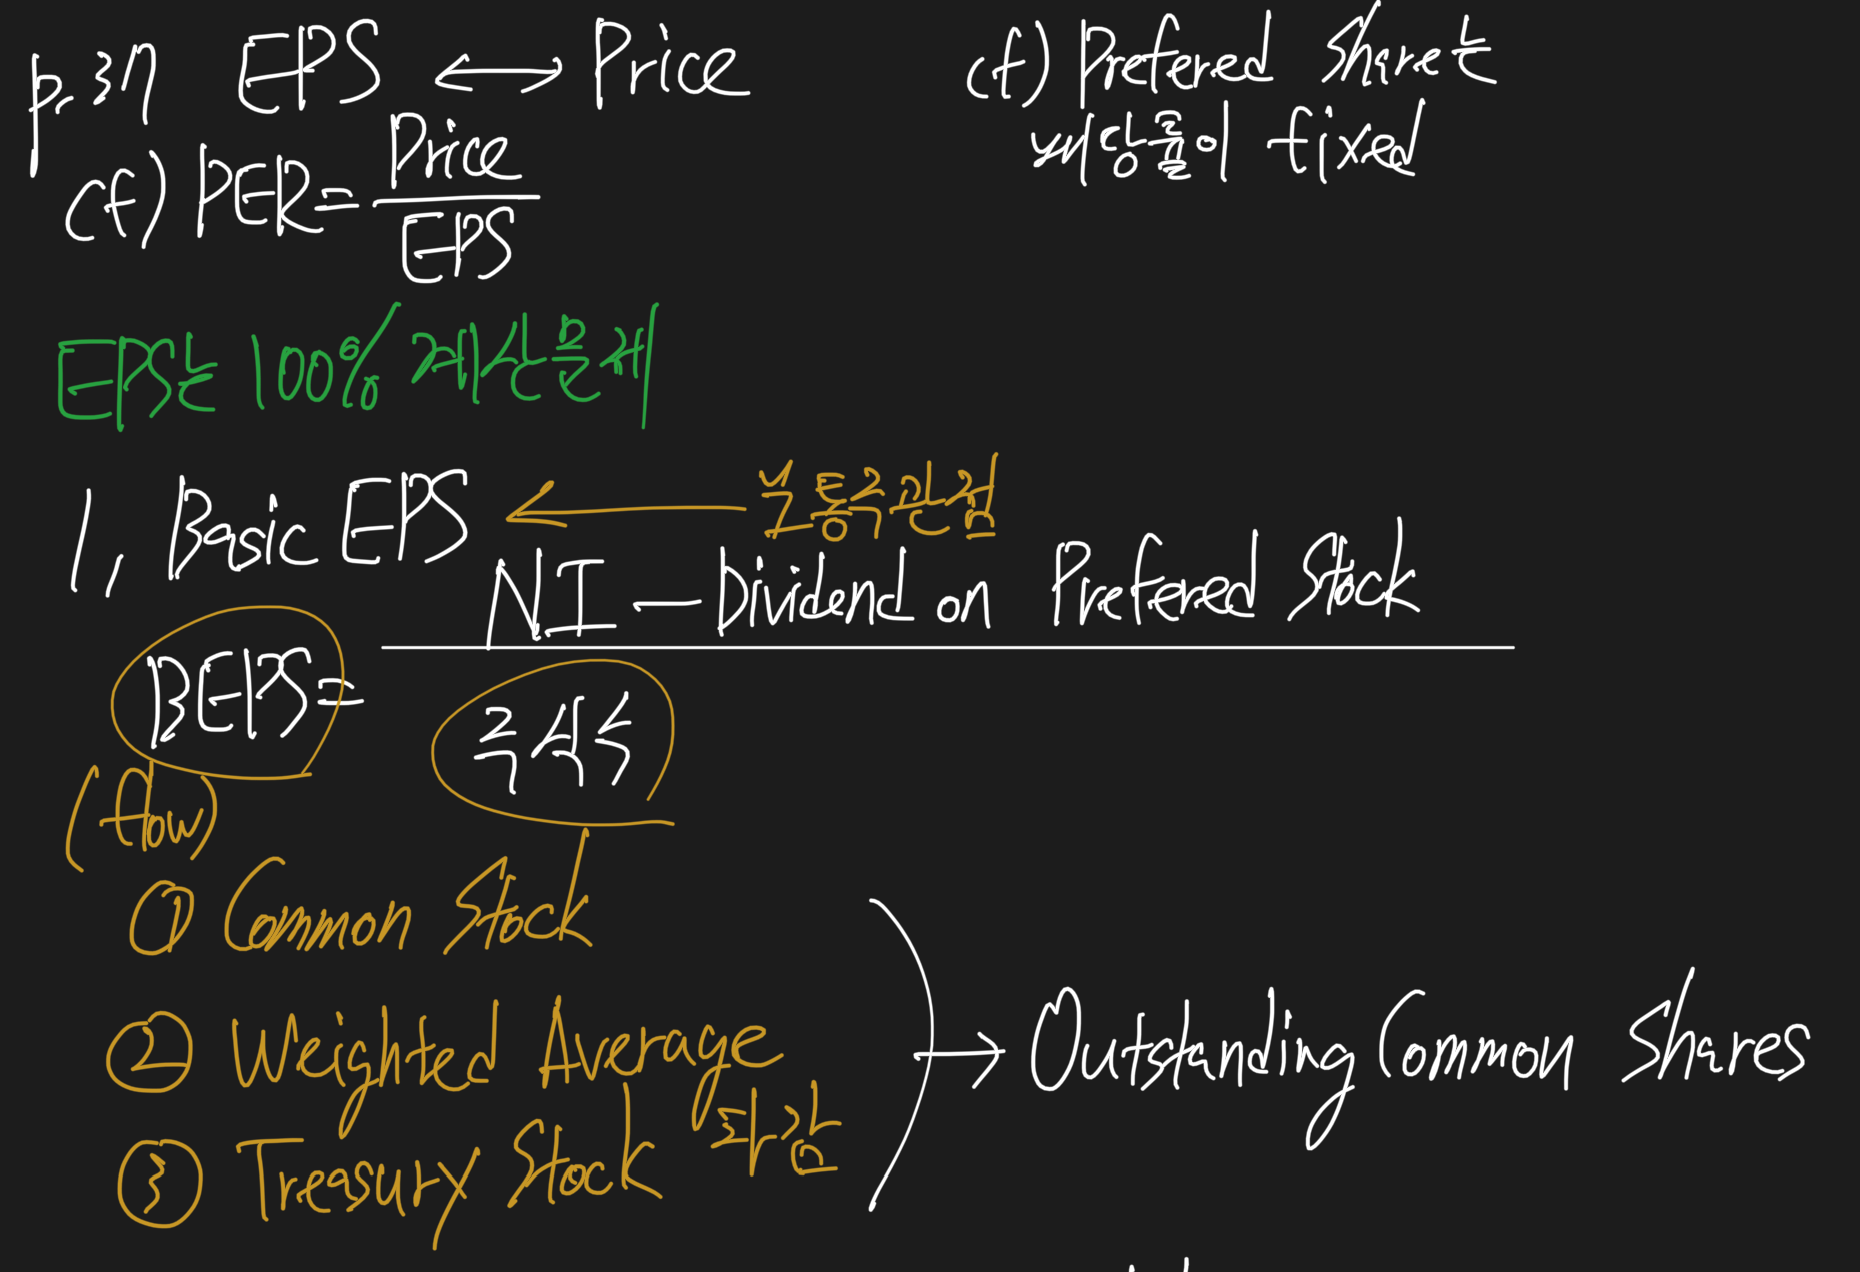 p.37 EPS ↔ Price
(cf) PER = Price / EPS
(cf) Prefered Share는
배당률이 fixed
EPS는 100% 계산문제
1, Basic EPS ← 보통주관점
BEPS = NI - Dividend on Prefered Stock / 주식수
(flow)
① Common Stock
② Weighted Average
③ Treasury Stock 차감
→ Outstanding Common Shares